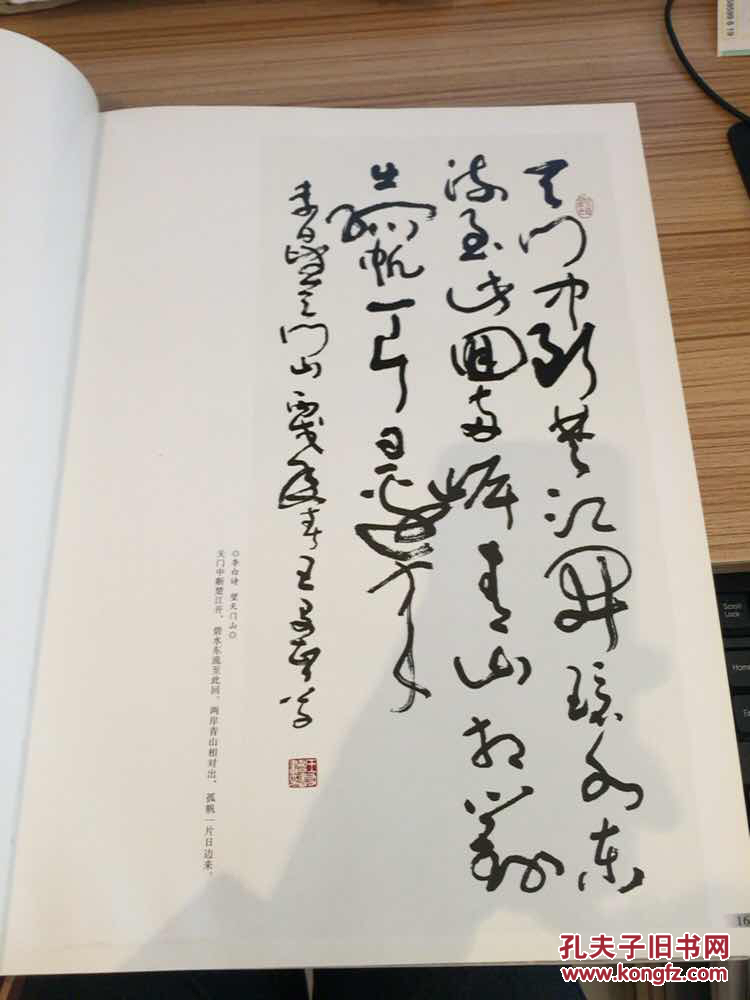 天门中断楚江开碧水东
流至此回两岸青山相对
出孤帆一片日边来
李白望天门山
◎李白诗 望天门山◎
天门中断楚江开，碧水东流至此回。两岸青山相对出，孤帆一片日边来。
16
Scroll
Lock
Home
孔夫子旧书网
www.kongfz.com